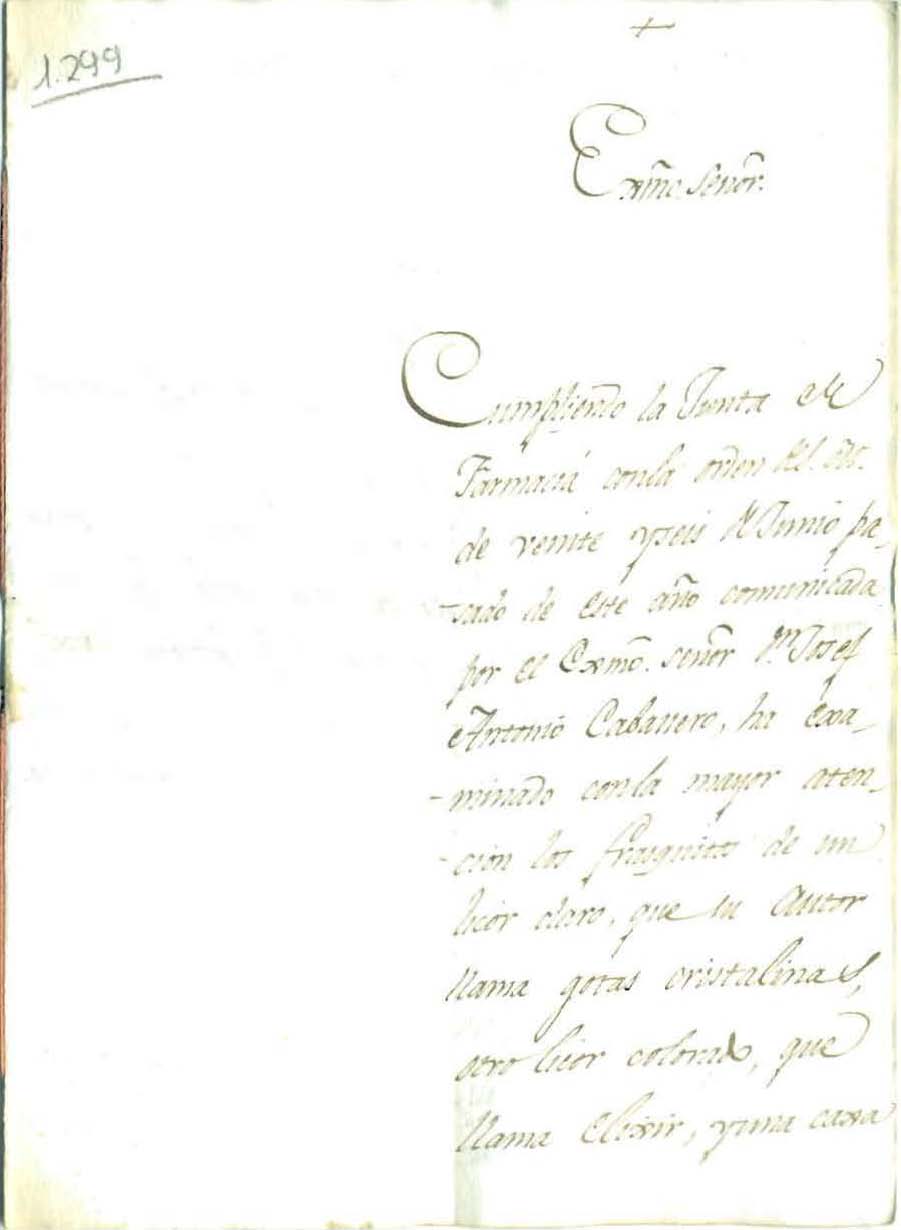 1.299
+
Exmo. Señor.
Cumpliendo la Junta de
Farmacia con la orden del
de veinte y seis de Junio pa-
-sado de este año comunicada
por el Exmo. señor Dn Josef
Antonio Cavallero, ha exa-
-minado con la mayor aten-
-cion los frasquitos de un
licor claro, que su Autor
llama gotas cristalinas,
otro licor colorado, que
llama Elixir, y una caxa